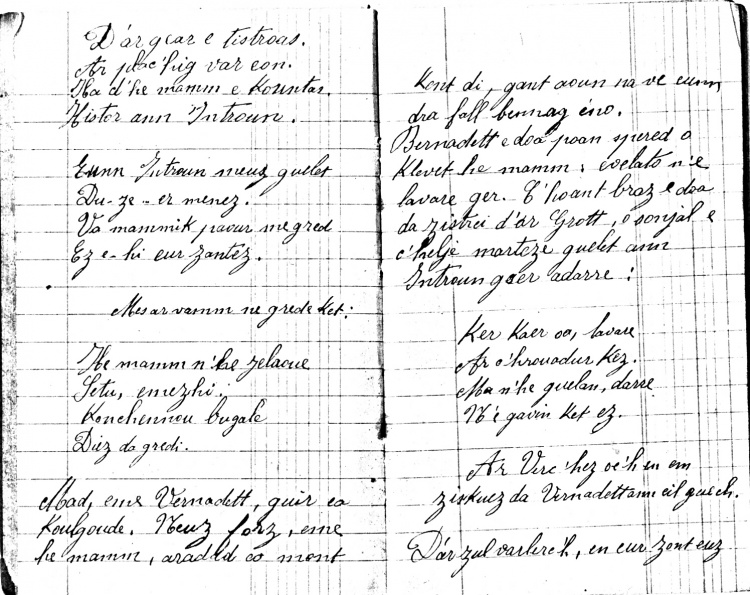 D'ar gear e tistroas.
Ar plac'hig var eon.
Ha d'he mamm e kountas.
Histor ann Introun.
Eunn Introun meus guelet
Du-ze - er menez.
Va mammik paour me gred
Ez e-hi eur zantez.
Mes ar vamm ne grede ket:
He mamm n'he zelaoue
Setu, emezhi:
Konchennou bugale
Diez da gredi.
Mad, eme Vernadett, guir eo
Koulgoude. Neuz forz, eme
he mamm, arad'd eo mont
Kont di, gant aoun na ve eunn
dra fall bennag éno.
Bernadett e doa poan spered o
Klevet he mamm; evelato n'e
lavare ger. C'hoant braz e doa
da zistrei d'ar Grott, o sonjal e
c'helje marteze guelet ann
Introun goer adarre:
Ker kaer oa, lavare
Ar c'hrouadur kez.
Ma n'he guelan, darre
N'é gavin ket ez.
Ar Verc'hez oe'h en em
ziskuez da Vernadett ann eil guech.
D'ar zul varlerc'h, en eur zont euz